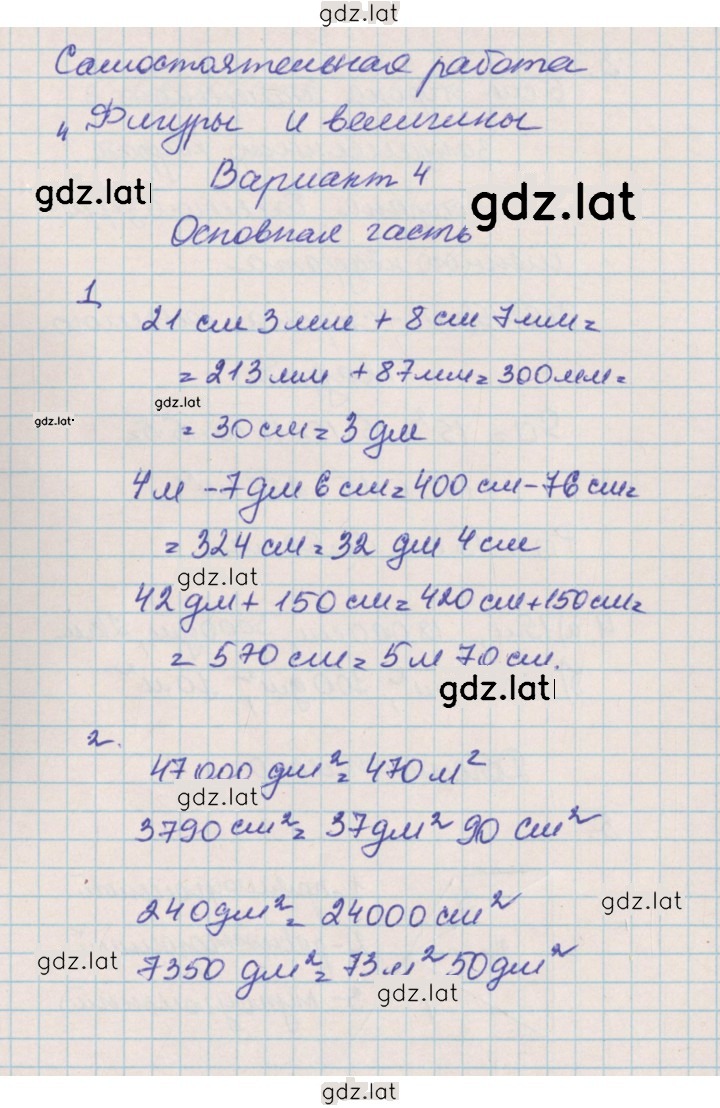 gdz.lat
Самостоятельная работа
„Фигуры и величины
Вариант 4
gdz.lat
gdz.lat
Основная часть
1
21 см 3 мм + 8 см 7 мм =
= 213 мм + 87 мм = 300 мм =
gdz.lat
gdz.lat
= 30 см = 3 дм
4 м - 7 дм 6 см = 400 см - 76 см =
= 324 см = 32 дм 4 см
gdz.lat
42 дм + 150 см = 420 см + 150 см =
= 570 см = 5 м 70 см.
gdz.lat
2.
47000 дм² = 470 м²
gdz.lat
3790 см² = 37 дм² 90 см²
240 дм² = 24000 см²
gdz.lat
7350 дм² = 73 м² 50 дм²
gdz.lat
gdz.lat
gdz.lat